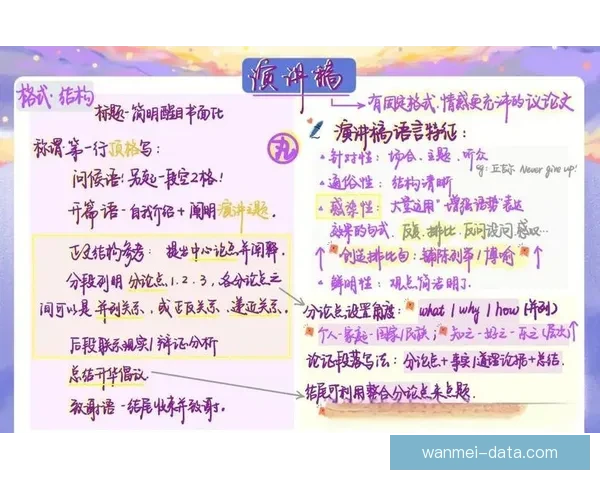 演讲稿
有固定格式.情感更充沛的议论文
格式·结构
标题-简明醒目书面化
称谓:第一行顶格写:
问候语!另起一段空2格!
开篇语-自我介绍+阐明演讲主题.
正文结构参考:提出中心论点并阐释.
分段列明分论点1.2.3,各分论点之
间可以是并列关系、或正反关系、递进关系。
后段联系现实/辩证分析
总结升华倡议
致谢语-结尾收束并致谢.
丸
演讲稿语言特征:
针对性:场合、主题、听众
eg:丘吉尔 Never give up!
通俗性:结构清晰
感染性:大量运用"增强语势"表达
效果的句式.反复、排比、反问设问.感叹…
↑创造排比句:铺陈列举/博喻↑
鲜明性:观点简洁明了.
分论点设置角度:what/why/how(并列)
个人-家庭-国家/民族;知之-好之-乐之(层次)↑
论证段落写法:分论点+事实/道理论据+总结.
结尾可利用整合分论点来点题.
wanmei-data.com